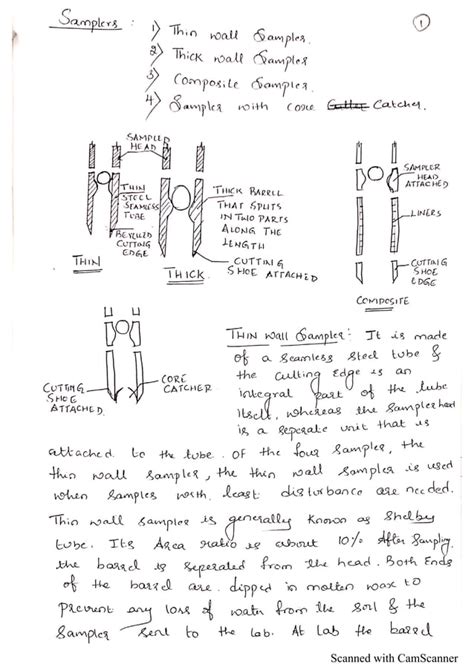 Samplers : 1
1) Thin wall Sampler.
2) Thick wall Sampler
3) Composite Sampler.
4) Sampler with core Catcher.
SAMPLER
HEAD
THIN
STEEL
SEAMLESS
TUBE
BEVELLED
CUTTING
EDGE
THIN
THICK BARREL
THAT SPLITS
IN TWO PARTS
ALONG THE
LENGTH
CUTTING
SHOE ATTACHED
THICK
SAMPLER
HEAD
ATTACHED
LINERS
CUTTING
SHOE
EDGE
COMPOSITE
CUTTING
SHOE
ATTACHED.
CORE
CATCHER
THIN Wall Sampler: It is made
of a seamless steel tube &
the cutting Edge is an
integral part of the tube
itself, whereas the sampler head
is a seperate unit that is
attached to the tube. Of the four Sampler, the
thin wall sampler, the thin wall sampler is used
when samples with least disturbance are needed.
Thin wall sampler is generally known as Shelby
tube. Its Area ratio is about 10% After Sampling
the barrel is seperated from the head. Both Ends
of the barrel are dipped in molten wax to
prevent any loss of water from the soil & the
Sampler sent to the lab. At lab the barrel
Scanned with CamScanner